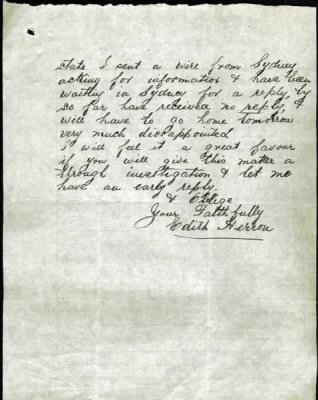 state I sent a wire from Sydney
asking for information & have been
waiting in Sydney for a reply, by
so far have received no reply, &
will have to go home tomorrow
very much disappointed
I will feel it a great favour
if you will give this matter a
through investigation & let me
have an early reply.
& Oblige
Your Faithfully
Edith Herron